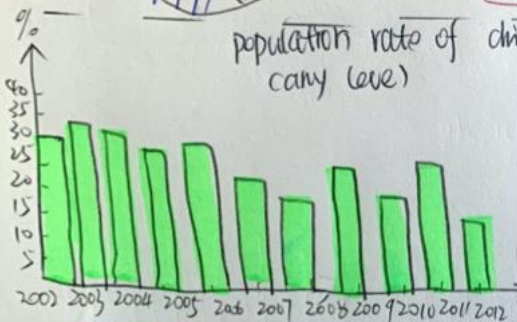 %
population rate of
cany (eve)
40
35
30
25
20
15
10
5
2002 2003 2004 2005 2006 2007 2008 2009 2010 2011 2012